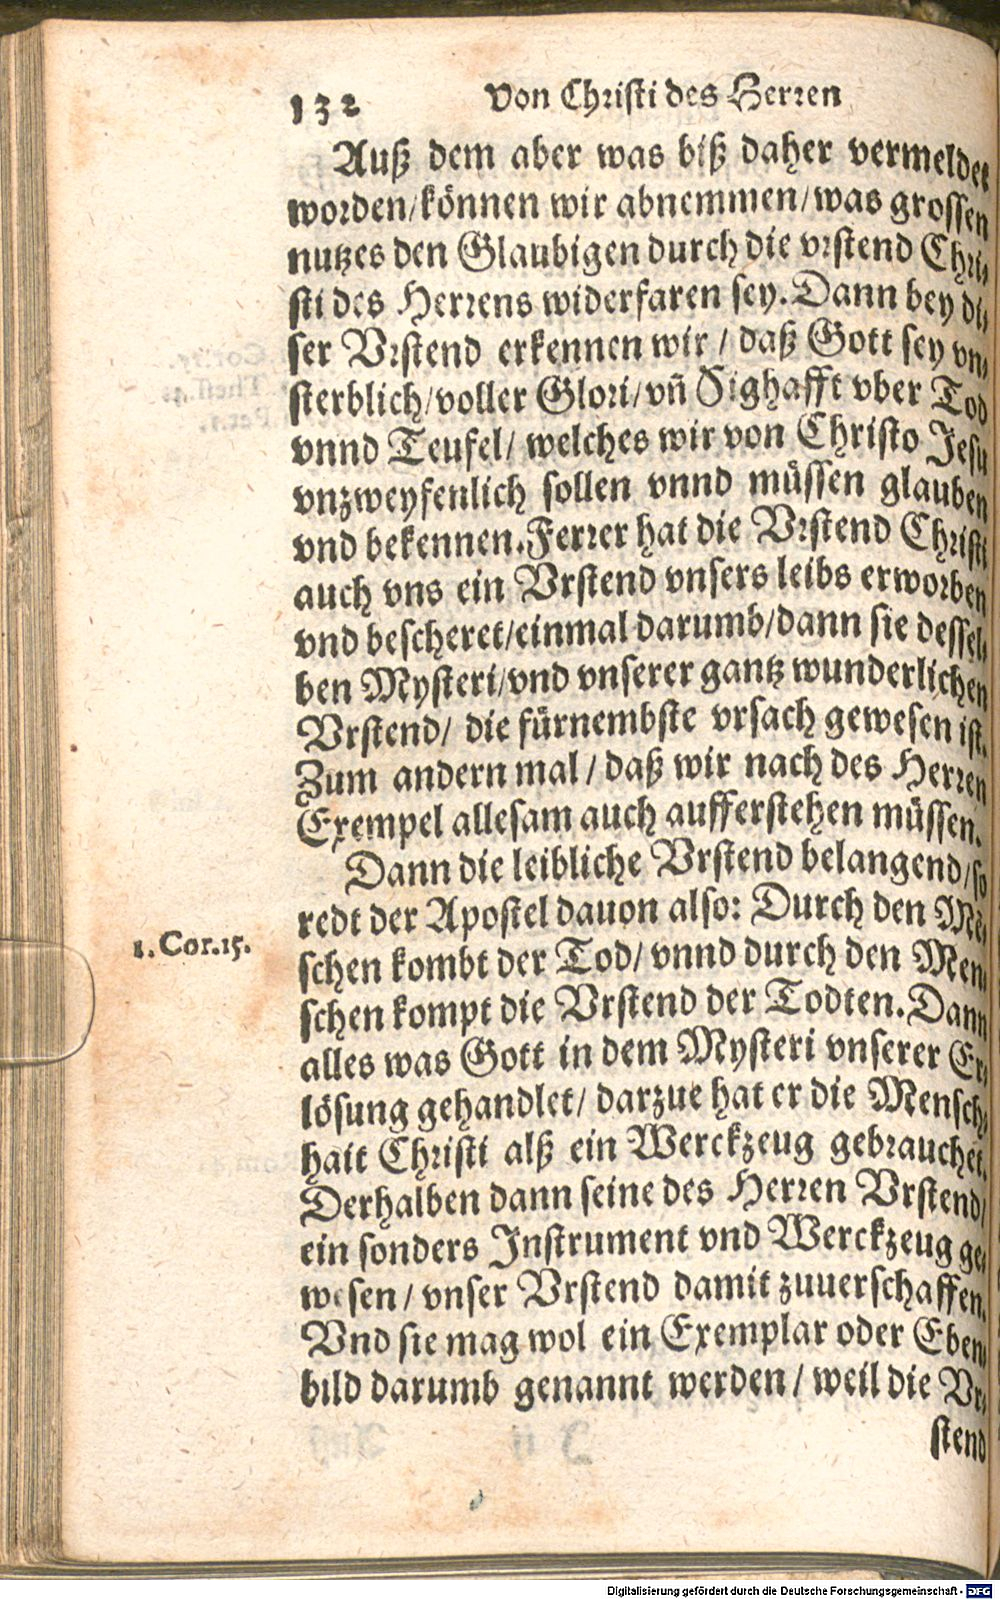 132 Von Christi des Herren
Auß dem aber was biß daher vermeldet
worden/können wir abnemmen/was grossen
nutzes den Glaubigen durch die vrstend Chri⸗
sti des Herrens widerfaren sey. Dann bey di⸗
ser Vrstend erkennen wir / daß Gott sey vn⸗
sterblich/voller Glori/vñ Sighafft vber Tod
vnnd Teufel/ welches wir von Christo Jesu
vnzweyfenlich sollen vnnd müssen glauben
vnd bekennen. Ferrer hat die Vrstend Christi
auch vns ein Vrstend vnsers leibs erworben
vnd bescheret/einmal darumb/dann sie dessel⸗
ben Mysteri/vnd vnserer gantz wunderlichen
Vrstend/ die fürnembste vrsach gewesen ist.
Zum andern mal / daß wir nach des Herren
Exempel allesam auch aufferstehen müssen.
Dann die leibliche Vrstend belangend/so
redt der Apostel dauon also: Durch den Mẽ⸗
1. Cor. 15.
schen kombt der Tod/ vnnd durch den Men⸗
schen kompt die Vrstend der Todten. Dann
alles was Gott in dem Mysteri vnserer Er⸗
lösung gehandlet/ darzue hat er die Mensch⸗
hait Christi alß ein Werckzeug gebrauchet.
Derhalben dann seine des Herren Vrstend/
ein sonders Instrument vnd Werckzeug ge⸗
wesen / vnser Vrstend damit zuuerschaffen.
Vnd sie mag wol ein Exemplar oder Eben⸗
bild darumb genannt werden / weil die Vr⸗
stend
Digitalisierung gefördert durch die Deutsche Forschungsgemeinschaft - DFG